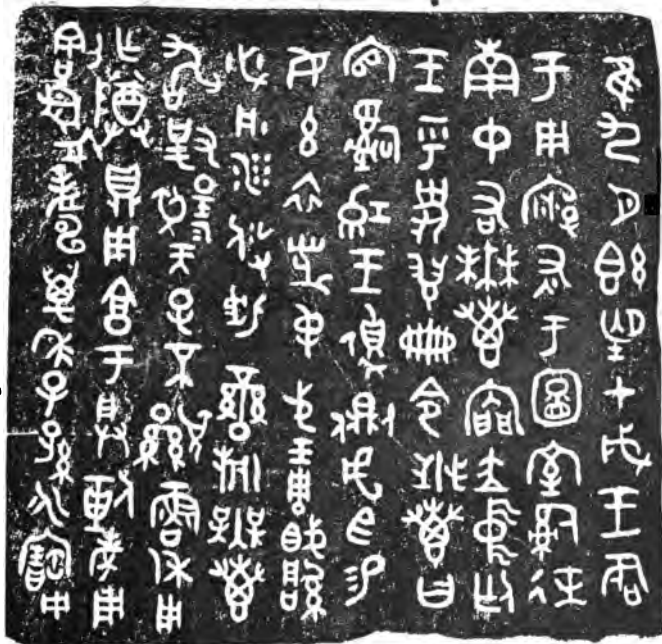 隹九月既望甲戌王各
于周廟于圖室司徒
南中右無叀內門立中廷
王乎史翏冊令無叀曰
官司紅王側虎臣易
女玄衣黹屯戈琱
必彤沙攸勒鑾旂無叀
敢對揚天子不顯魯休用
乍尊鼎用享于朕剌考用
割眉壽萬年子孫永寶用